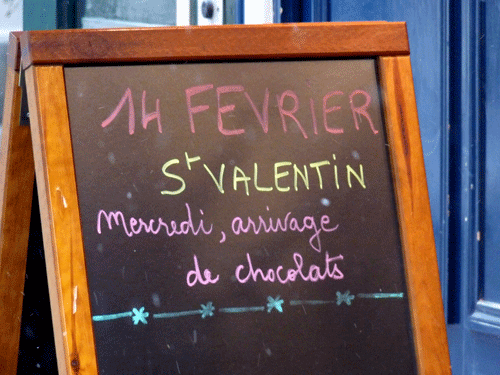 14 FEVRIER
St VALENTIN
Mercredi, arrivage
de chocolats